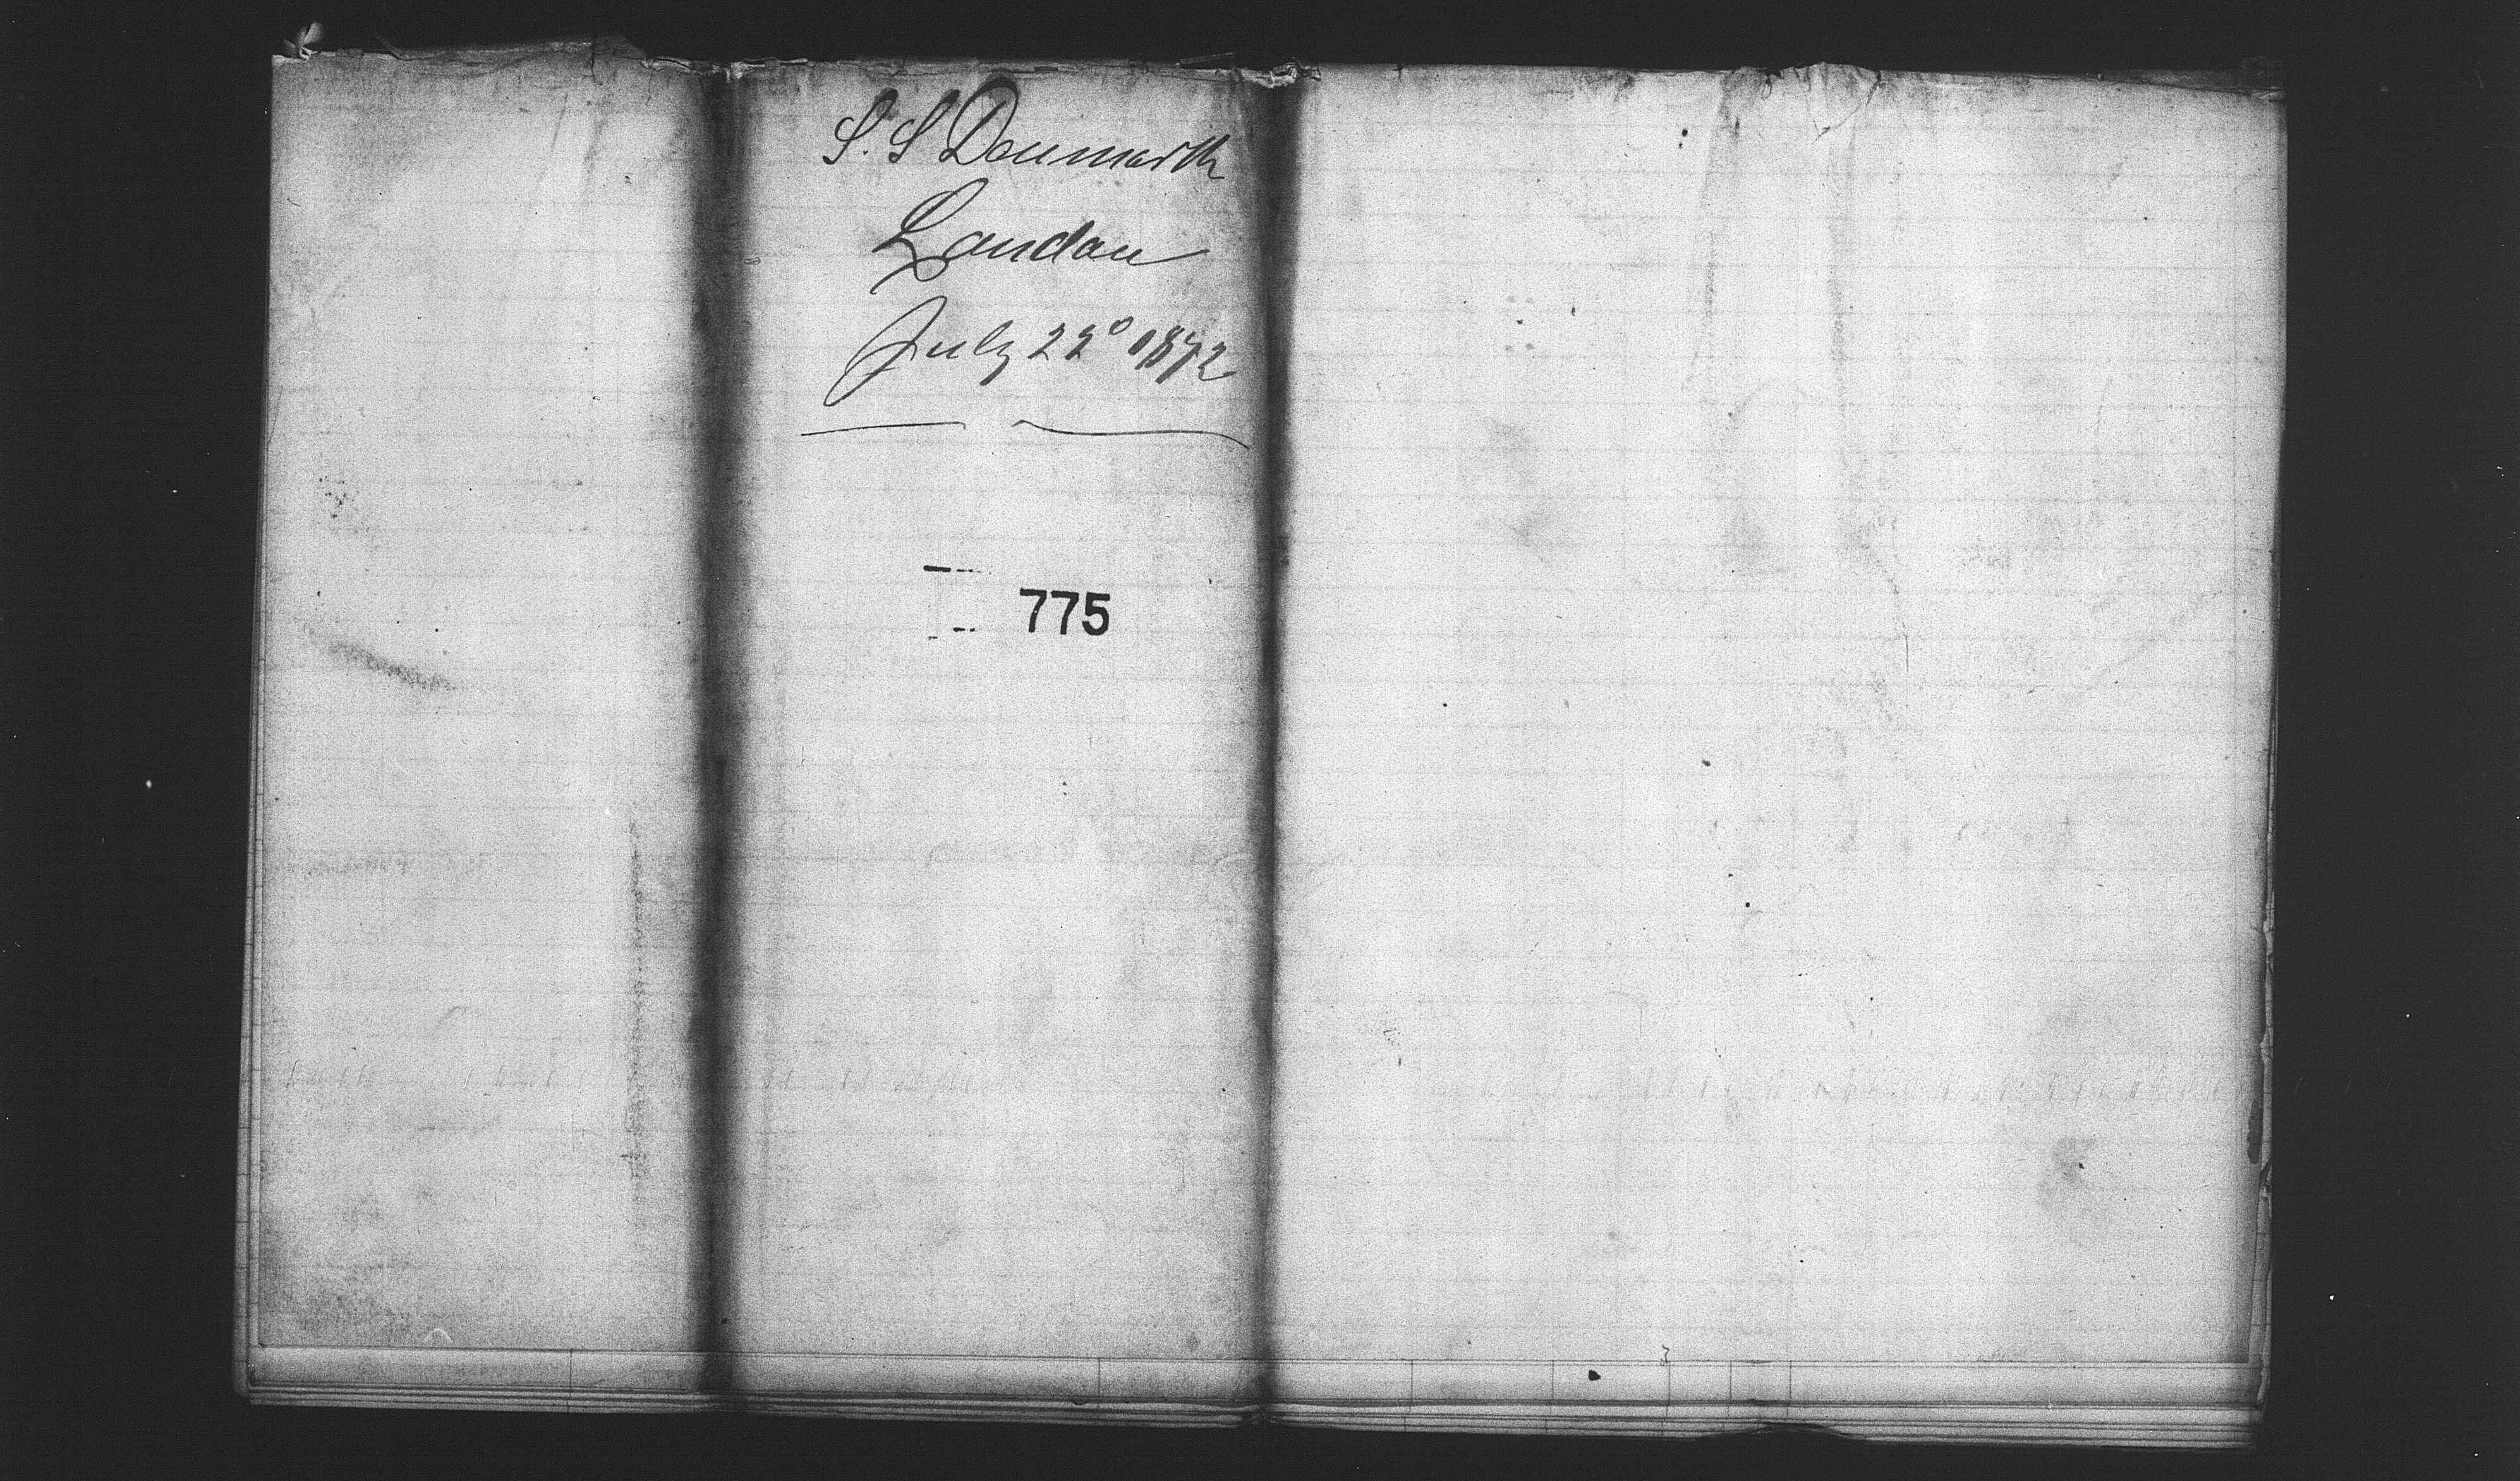 S. S Denmark
London
July 22° 1872
775